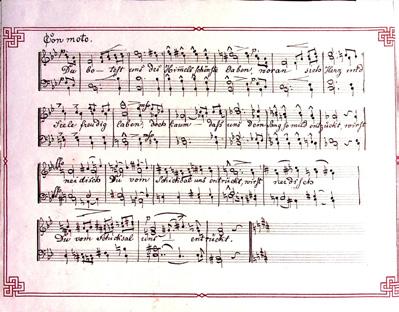 Con moto.
Du bo-test uns des Himmels schönste Gaben, woran sich Herz und
Seele freudig laben, doch kaum dass uns dein Sang so mild entzückt, wirst
neidisch Du vom Schicksal uns entrückt, wirst neidisch
Du vom Schicksal uns entrückt.